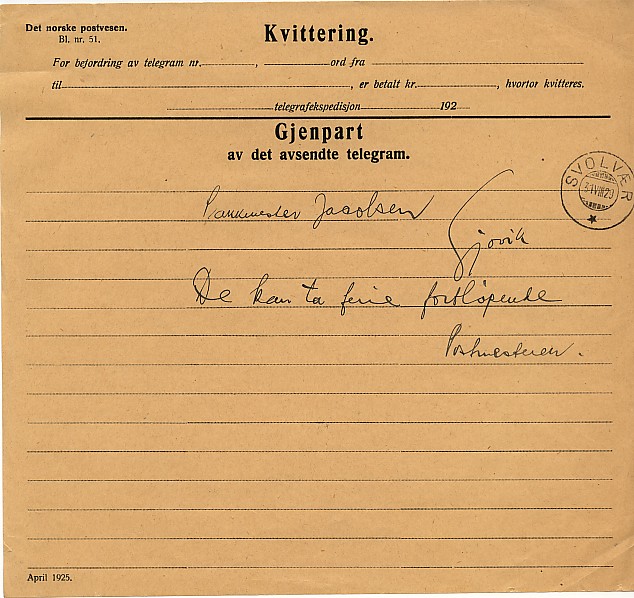 Det norske postvesen.
Bl. nr. 51.
Kvittering.
For befordring av telegram nr. , ord fra
til , er betalt kr. , hvorfor kvitteres.
telegrafekspedisjon 192
Gjenpart
av det avsendte telegram.
SVOLVÆR
31 VIII 29
Jacobsen
Gjøvik
De kan ta ferie fortløpende
Postmesteren.
April 1925.